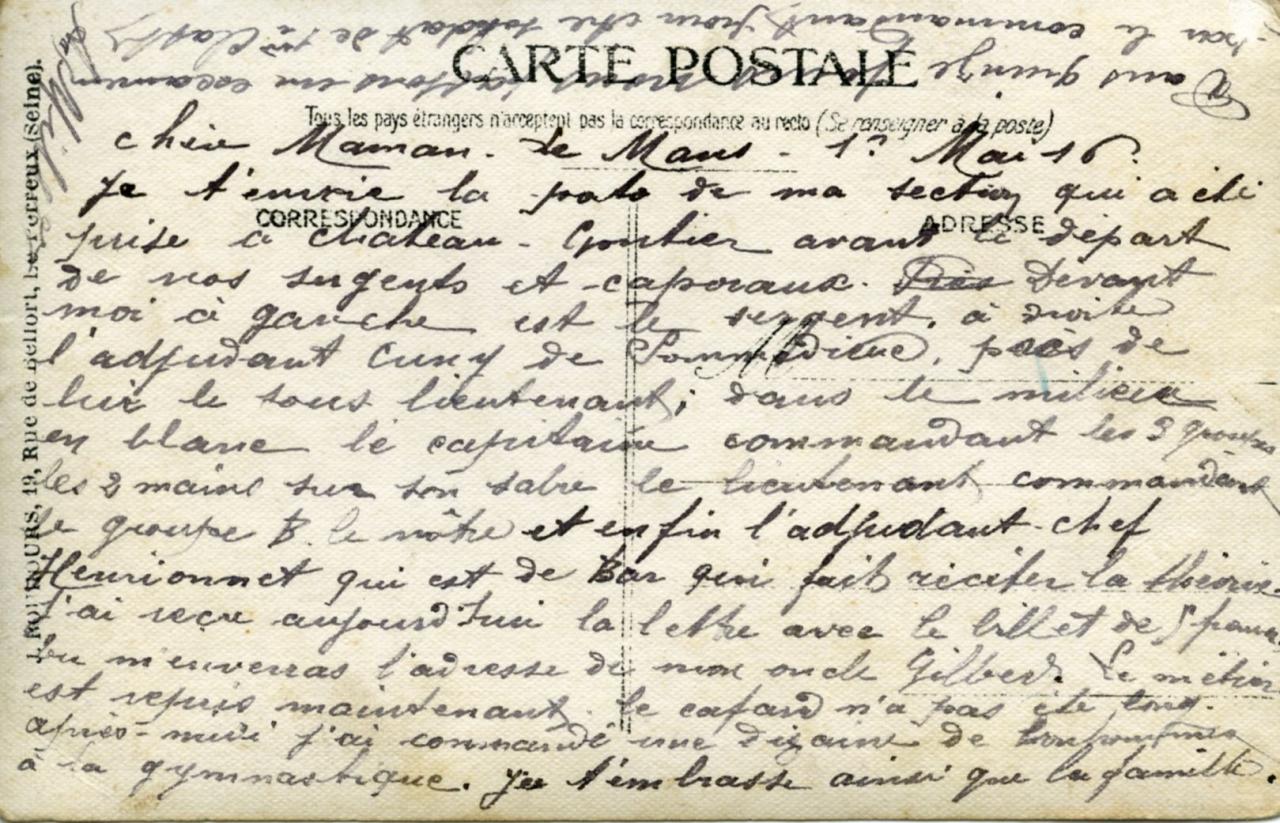 CARTE POSTALE
Tous les pays étrangers n'acceptent pas la correspondance au recto (Se renseigner à la poste)
CORRESPONDANCE
ADRESSE
19, Rue de Belfort, Le Perreux (Seine).
Chère Maman. Le Mans - 1er Mai 16.
Je t'envoie la photo de ma section qui a été
prise à Chateau-Gontier avant le départ
de nos sergents et caporaux. Devant
moi à gauche est le sergent, à droite
l'adjudant Cuny de Sommedieue, près de
lui le sous lieutenant; dans le milieu
en blanc le capitaine commandant les 3 groupes
les 2 mains sur son sabre le lieutenant commandant
le groupe B. le nôtre et enfin l'adjudant-chef
Henrionnet qui est de Bar qui fait réciter la théorie.
J'ai reçu aujourd'hui la lettre avec le billet de 5 francs.
Tu m'enverras l'adresse de mon oncle Gilbert. Le métier
est repris maintenant. le cafard n'a pas été long.
après-midi j'ai commandé une dizaine de
à la gymnastique. Je t'embrasse ainsi que la famille.
Dans quinze jours nous passons un examen
par le commandant pour être soldat de 1re classe